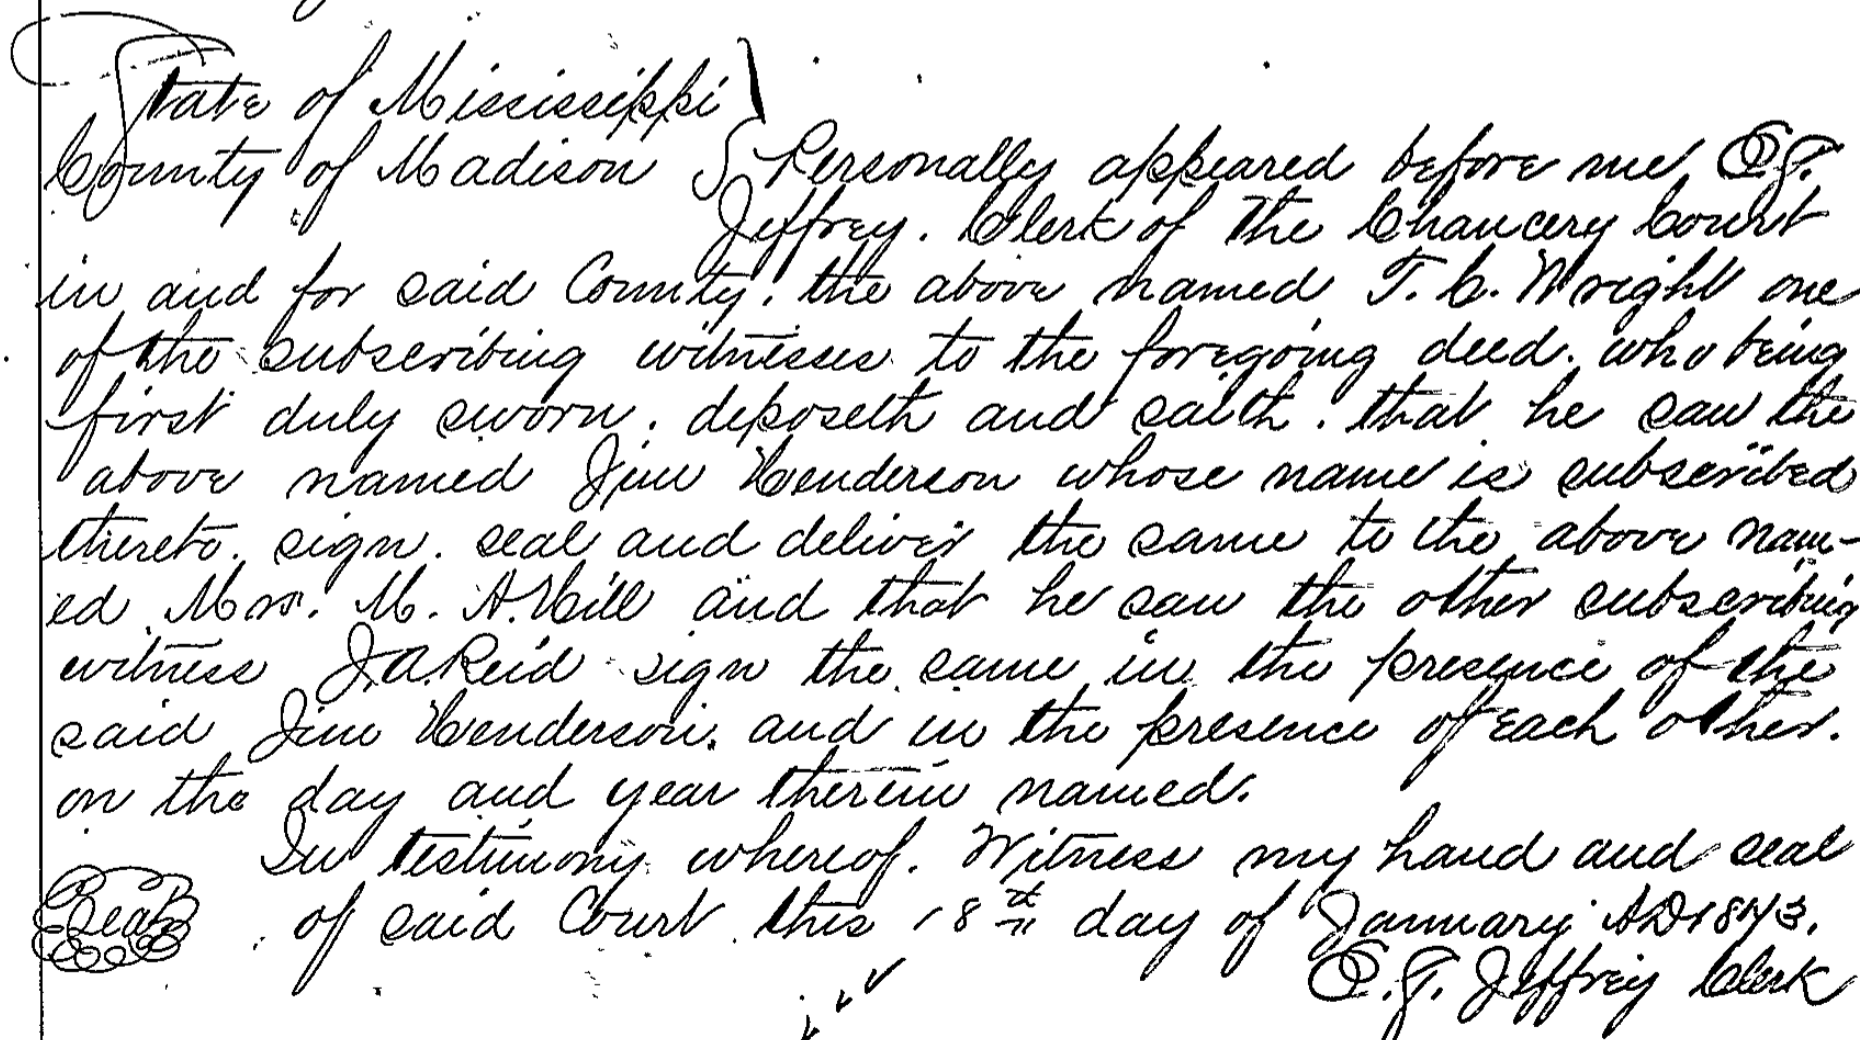 State of Mississippi
County of Madison } Personally appeared before me
Jeffrey. Clerk of the Chancery Court
in and for said County, the above named T. C. Wright one
of the subscribing witnesses to the foregoing deed. who being
first duly sworn. deposeth and saith. that he saw the
above named Jim Henderson whose name is subscribed
thereto. sign. seal and deliver the same to the above nam-
ed Mrs. M. A. Hill and that he saw the other subscribing
witness J. A. Reid sign the same in the presence of the
said Jim Henderson. and in the presence of each other.
on the day and year therein named.
In testimony whereof. Witness my hand and seal
Seal of said Court this 18th day of January AD
Jeffrey Clerk